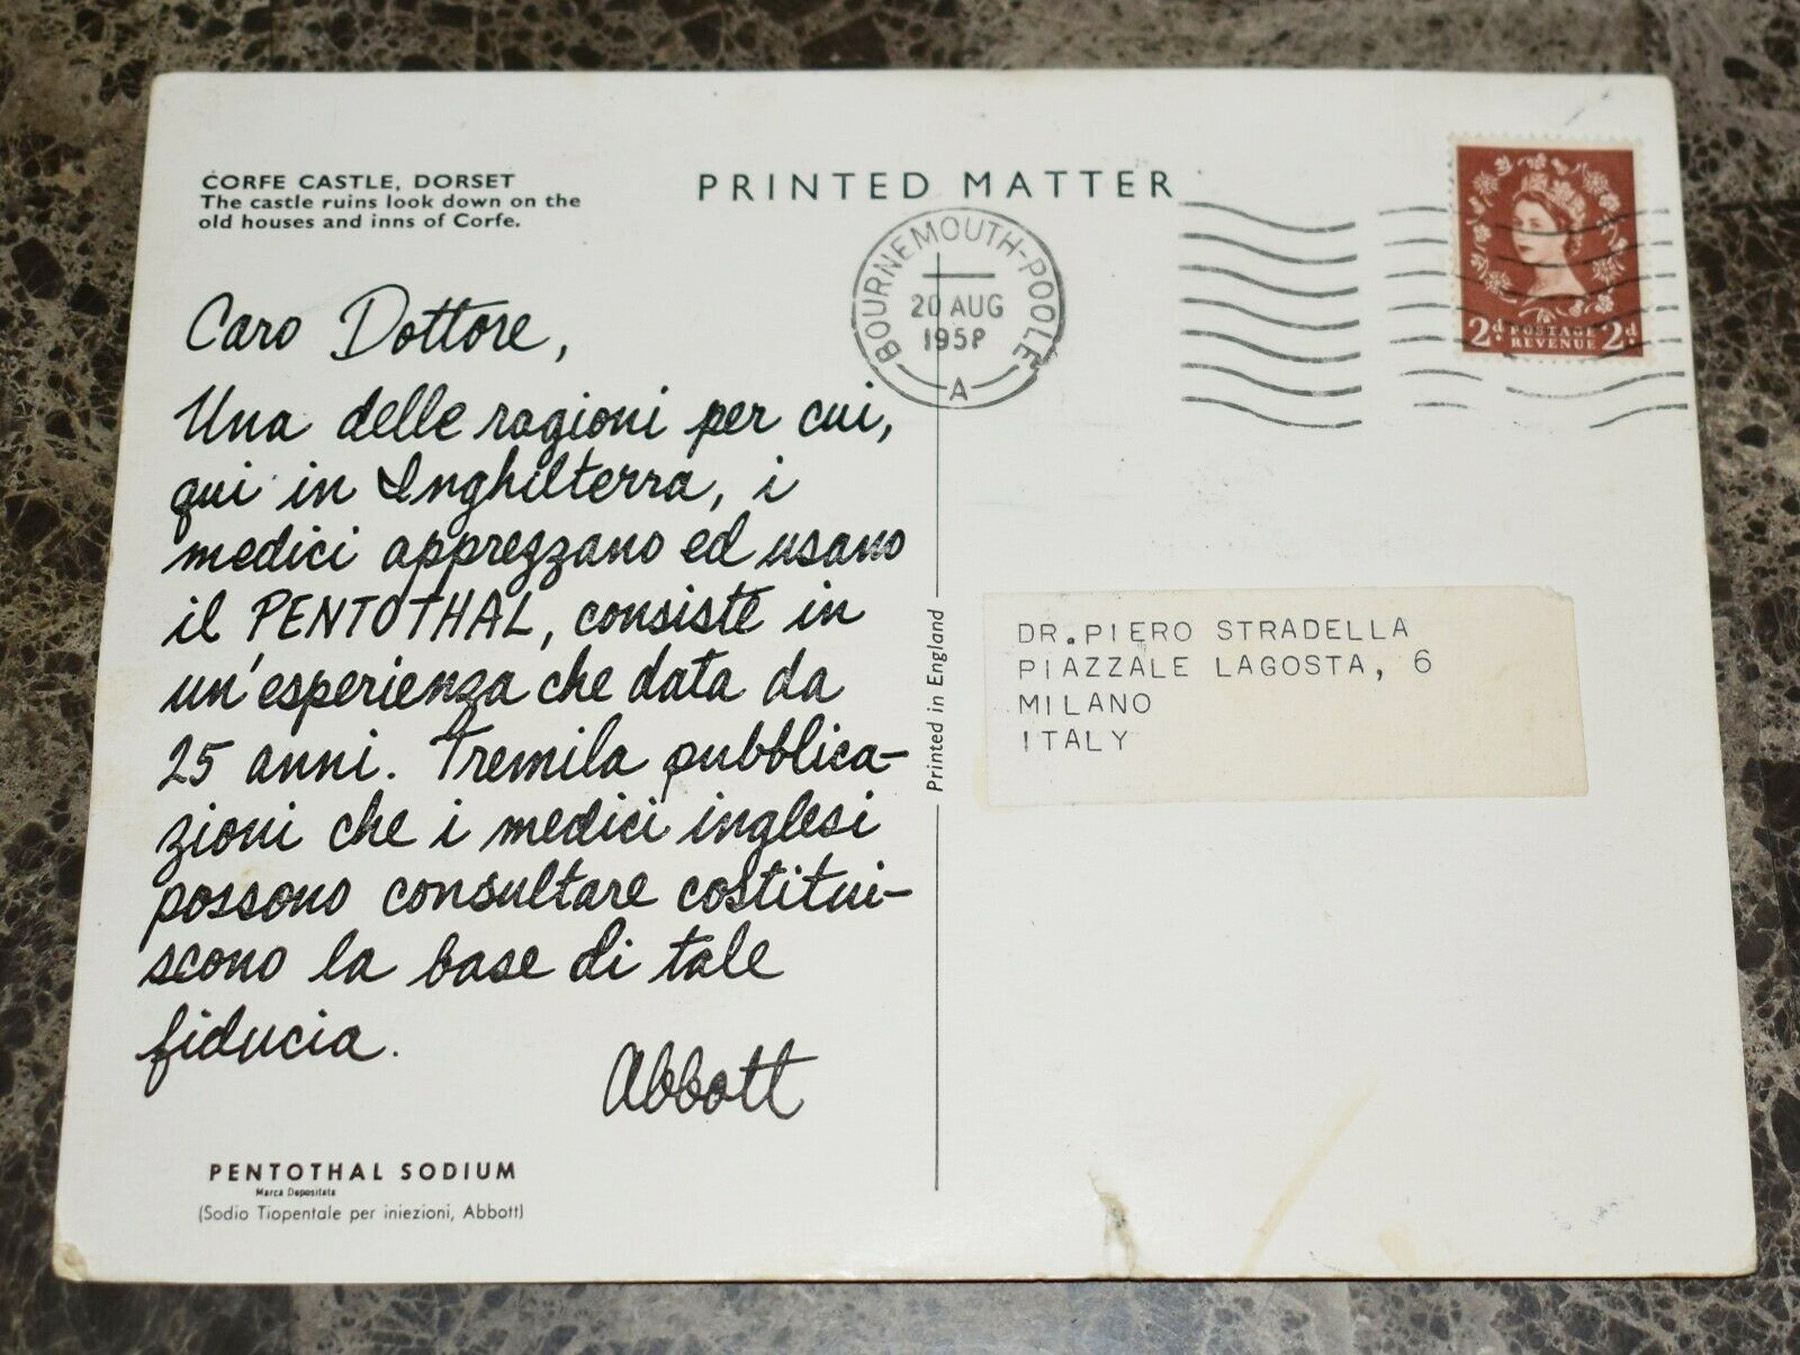 CORFE CASTLE, DORSET
The castle ruins look down on the
old houses and inns of Corfe.
PRINTED MATTER
BOURNEMOUTH-POOLE
20 AUG
1958
A
2d POSTAGE 2d
REVENUE
Caro Dottore,
Una delle ragioni per cui,
qui in Inghilterra, i
medici apprezzano ed usano
il PENTOTHAL, consiste in
un'esperienza che data da
25 anni. Tremila pubblica-
zioni che i medici inglesi
possono consultare costitui-
scono la base di tale
fiducia.
Abbott
PENTOTHAL SODIUM
Marca Depositata
(Sodio Tiopentale per iniezioni, Abbott)
Printed in England
DR.PIERO STRADELLA
PIAZZALE LAGOSTA, 6
MILANO
ITALY